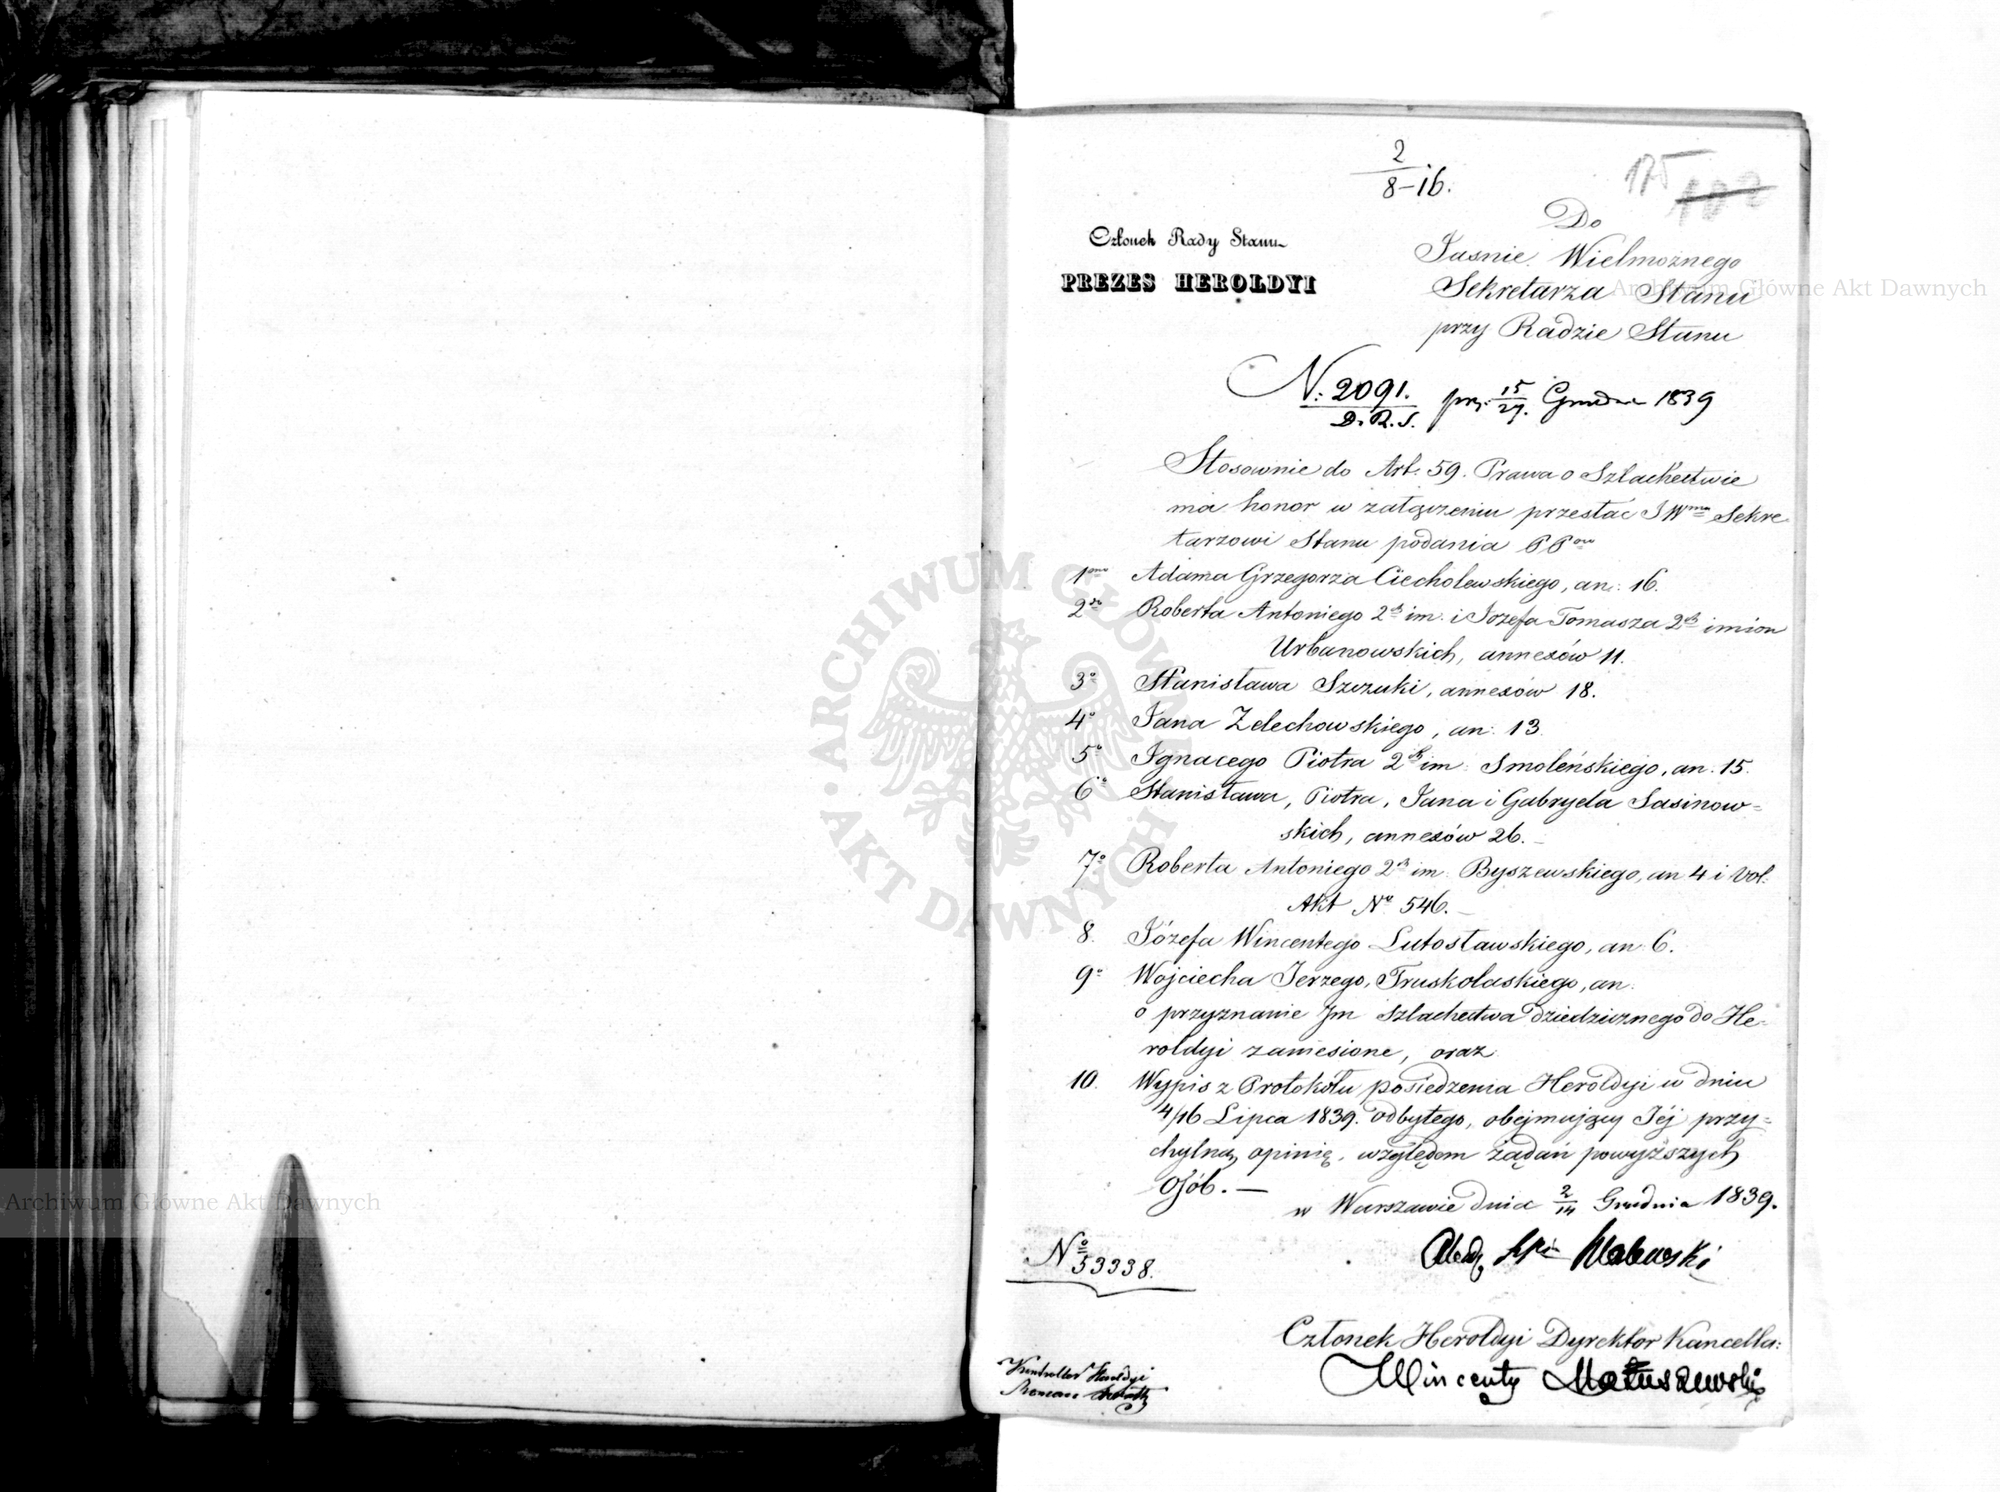 2
8–16.
175
Członek Rady Stanu
PREZES HEROLDYI
Do
Jaśnie Wielmożnego
Sekretarza Stanu
przy Radzie Stanu
N: 2091. prz: 15/27. Grudnia 1839
D. R. S.
Stosownie do Art: 59. Prawa o Szlachectwie
ma honor w załączeniu przesłać JW Sekre
tarzowi Stanu podania PP
1 Adama Grzegorza Ciecholewskiego, an: 16.
2 Roberta Antoniego 2ch im. i Józefa Tomasza 2ch imion
Urbanowskich, annexów 11.
3o Stanisława Szczuki, annexów 18.
4o Jana Zelechowskiego, an: 13.
5o Ignacego Piotra 2ch im: Smoleńskiego, an. 15.
6o Stanisława, Piotra, Jana i Gabryela Sasinow=
skich, annexów 26. –
7o Roberta Antoniego 2ch im. Byszewskiego, an 4 i vol:
Akt No 546. –
8. Józefa Wincentego Lutosławskiego, an: 6.
9o Wojciecha Jerzego, Truskolaskiego, an:
o przyznanie Im szlachectwa dziedzicznego do He=
roldyi zaniesione, oraz
10. Wypis z Protokółu posiedzenia Heroldyi w dniu
4/16 Lipca 1839. odbytego, obejmujący Jéj przy=
chylną opinię, względem żądań powyższych
Osób. —
w Warszawie dnia 2/14 Grudnia 1839.
No 53338.
Członek Heroldyi Dyrektor Kancella:
Wincenty Matuszewski
Kontroller Heroldyi
Roman
ARCHIWUM GŁÓWNE AKT DAWNYCH
Archiwum Główne Akt Dawnych
Archiwum Główne Akt Dawnych